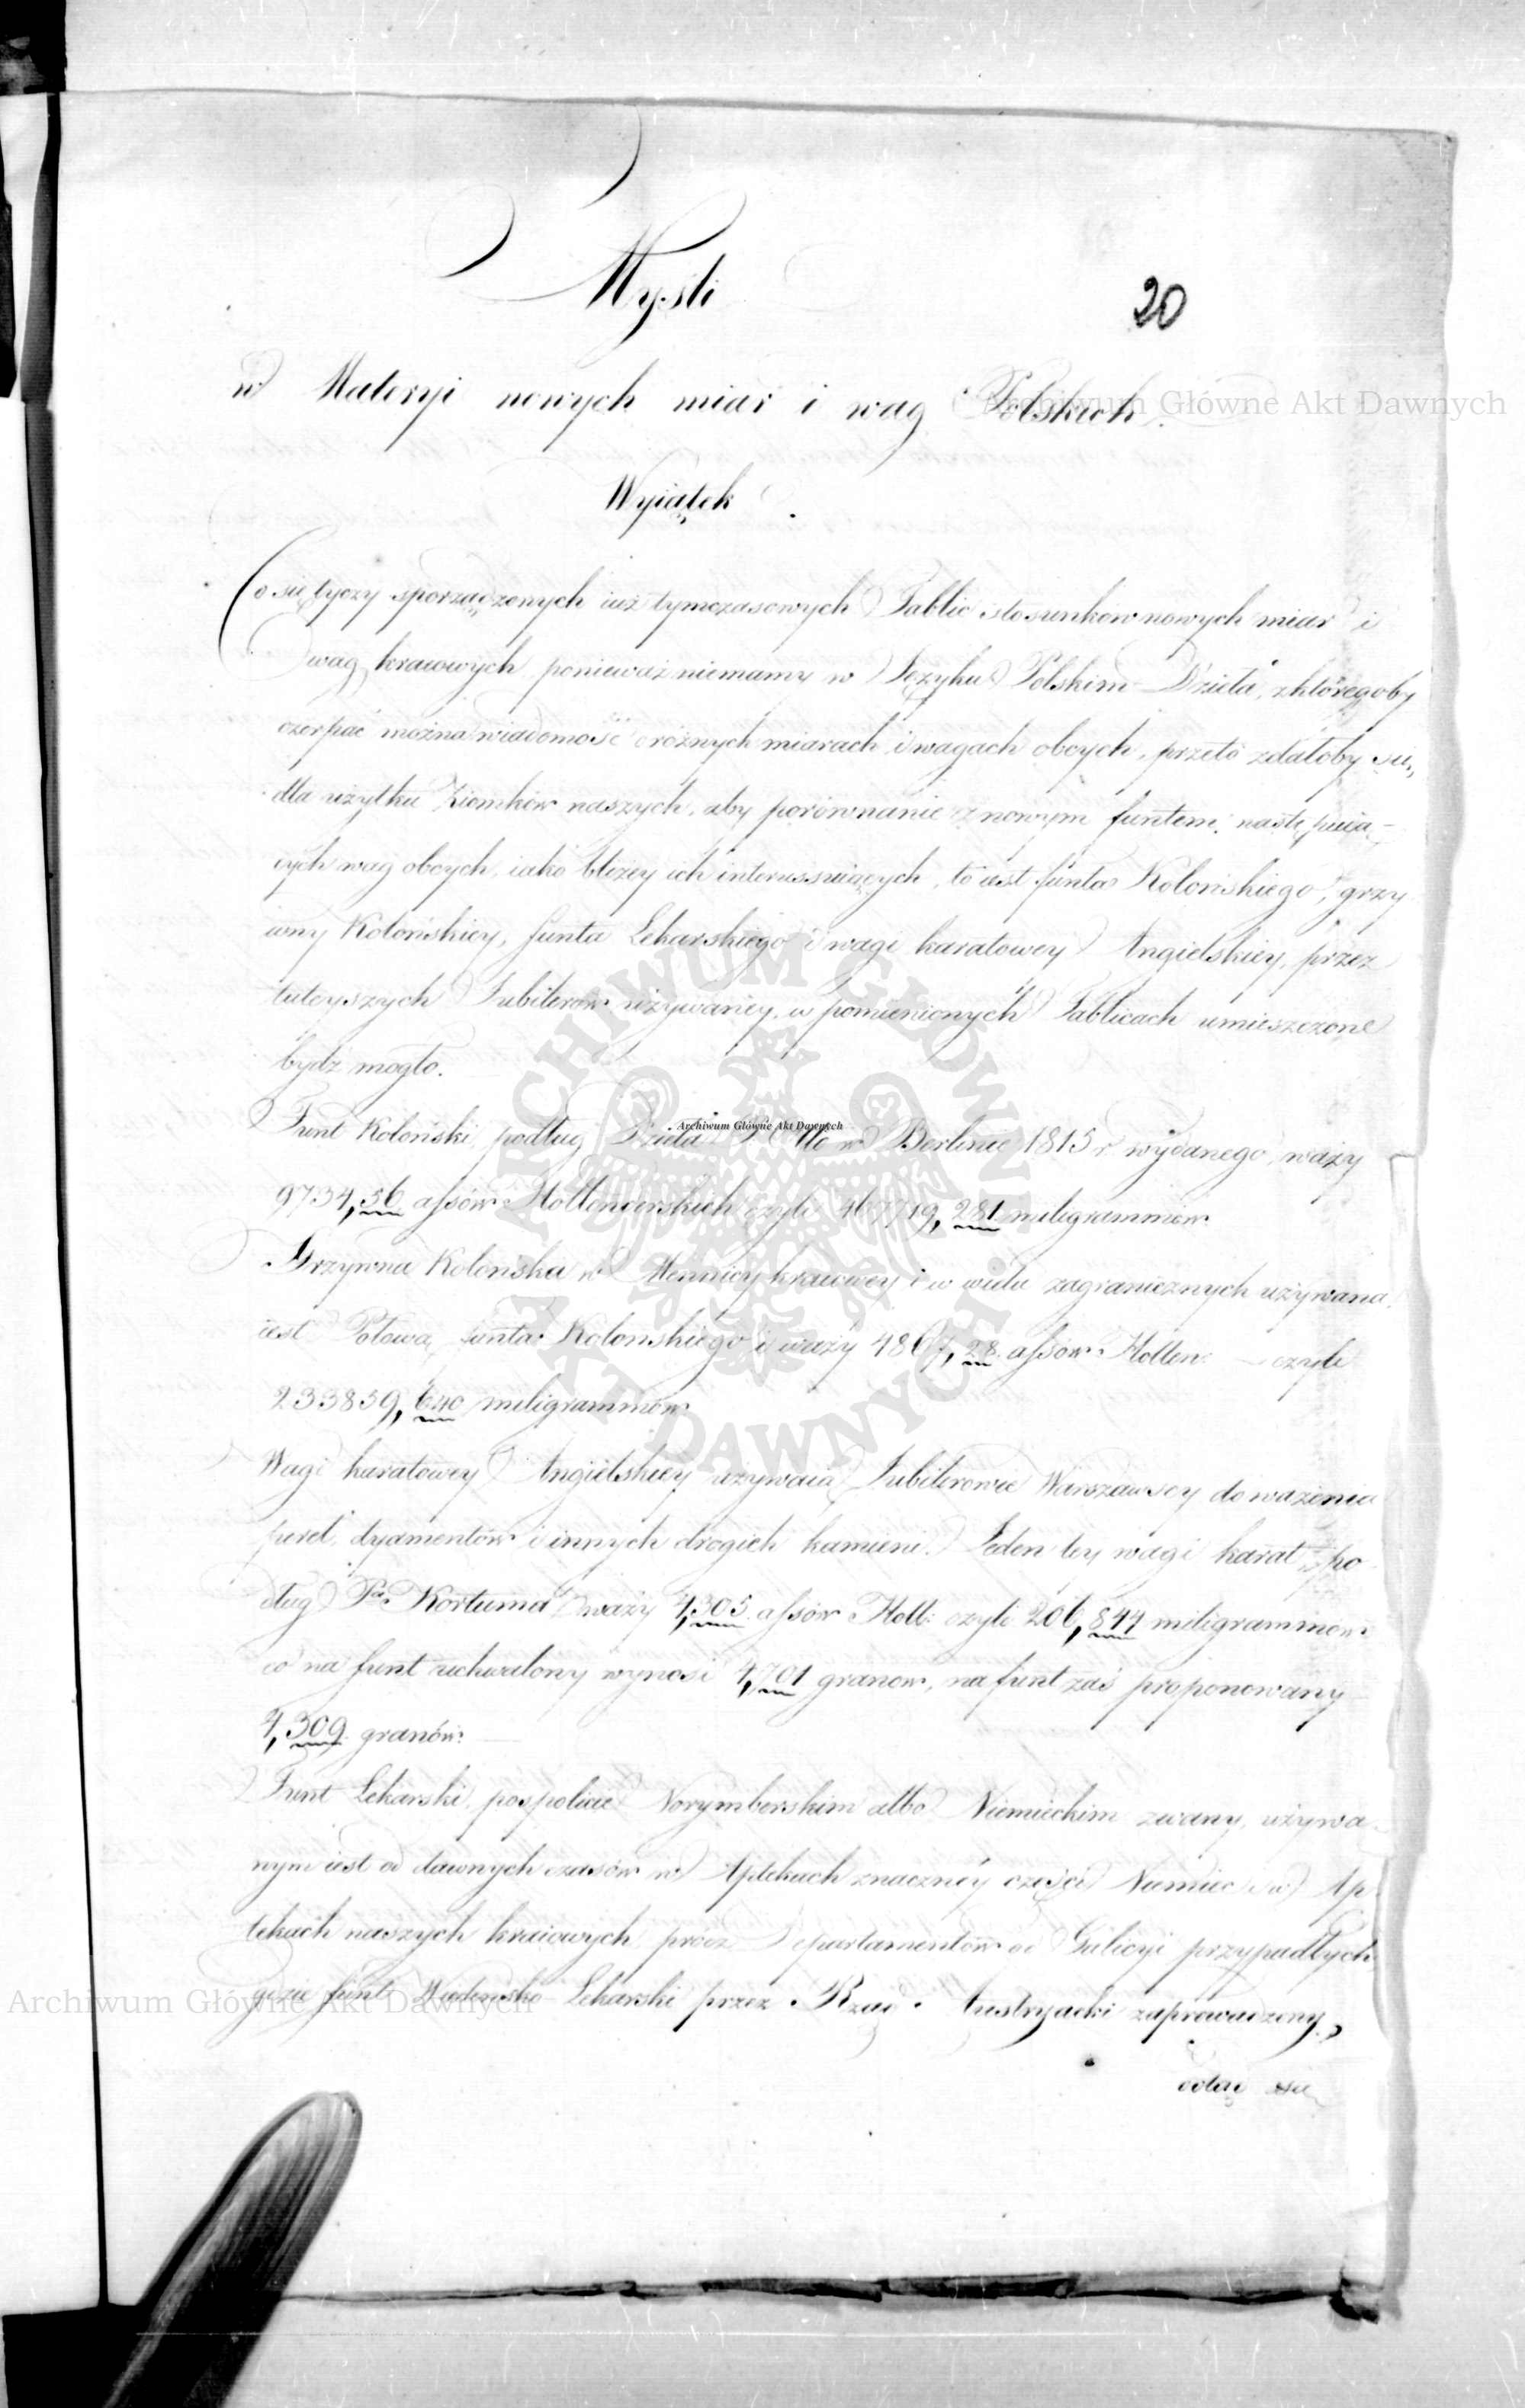 Mysli
20
w Materyi nowych miar i wag Polskich.
Wyiątek.
Co się tyczy sporządzonych iuż tymczasowych Tablic stosunków nowych miar i
wag kraiowych, ponieważ niemamy w Języku Polskim Dzieła, zktóregoby
czerpać można wiadomość o różnych miarach i wagach obcych, przeto zdałoby się,
dla użytku Ziomków naszych, aby porównanie z nowym funtem, następuią-
cych wag obcych, iako bliżey ich interessuiących, to iest funta Kolońskiego, grzy
wny Kolońskiey, funta Lekarskiego i wagi karatowey Angielskiey, przez
tuteyszych Jubilerów używaney, w pomienionych Tablicach umieszczone
bydz mogło.
Funt Koloński, podług Dzieła w Berlinie 1815 r. wydanego, waży
9734,56 assów Hollenderskich czyli 467719,281 miligrammów.
Grzywna Kolońska w Mennicy kraiowey i w wielu zagranicznych używana,
iest Połową funta Kolonskiego i waży 4867,28 assów Hollen: czyli
233859,640 miligrammów
Wagi karatowey Angielskiey używaią Jubilerowie Warszawscy do ważenia
pereł, dyamentów i innych drogich kamieni. Jeden tey wagi karat, po
dług Pa Kortuma waży 4,305 assów Holl: czyli 206,844 miligrammów
co na funt uchwalony wynosi 4,701 granow, na funt zaś proponowany
4,309 granów.
Funt Lekarski, pospolicie Norymberskim albo Niemieckim zwany, używa-
nym iest od dawnych czasów w Aptekach znaczney części Niemiec i w Ap
tekach naszych kraiowych, prócz Departamentów od Galicyi przypadłych
gdzie funt Wiedeńsko Lekarski przez Rząd Austryacki zaprowadzony,
ostał się
Archiwum Główne Akt Dawnych
Archiwum Główne Akt Dawnych
Archiwum Główne Akt Dawnych
ARCHIWUM GŁÓWNE AKT DAWNYCH